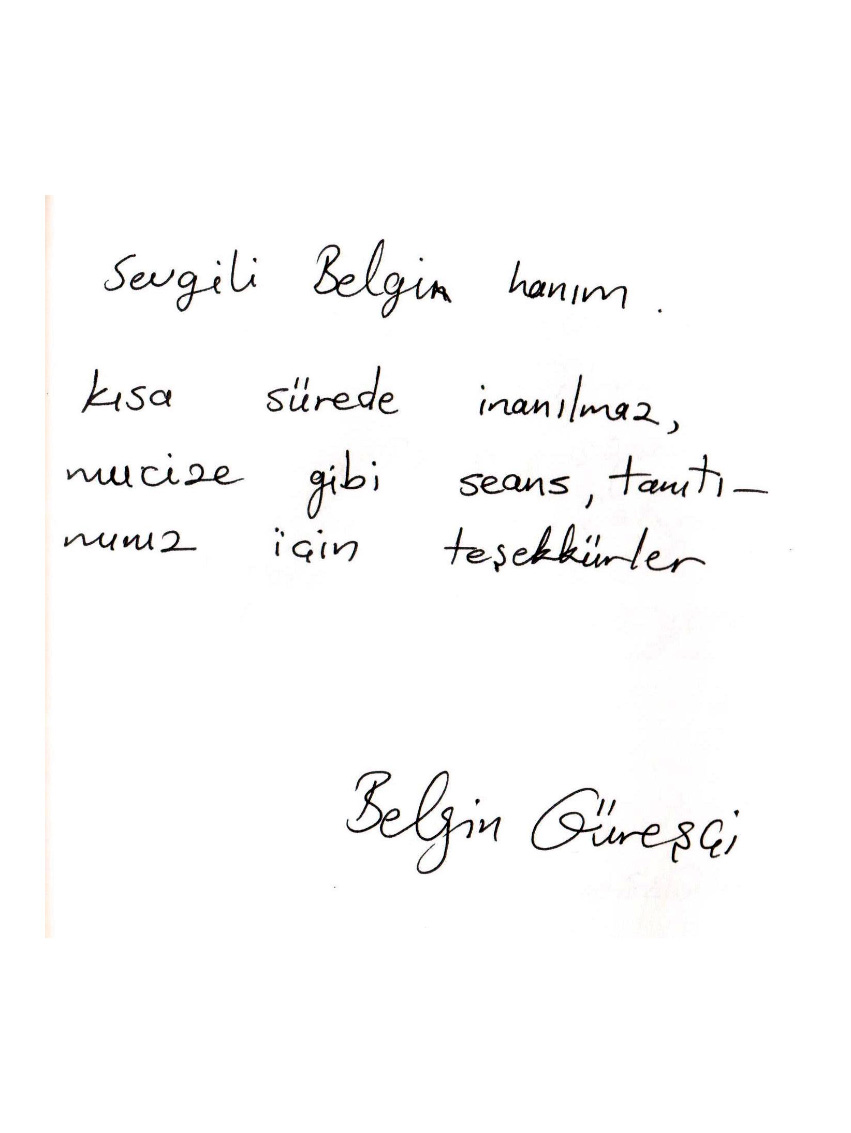 Sevgili Belgin hanım.
kısa sürede inanılmaz,
mucize gibi seans, tanıtı-
nımız için teşekkürler
Belgin Güreşçi